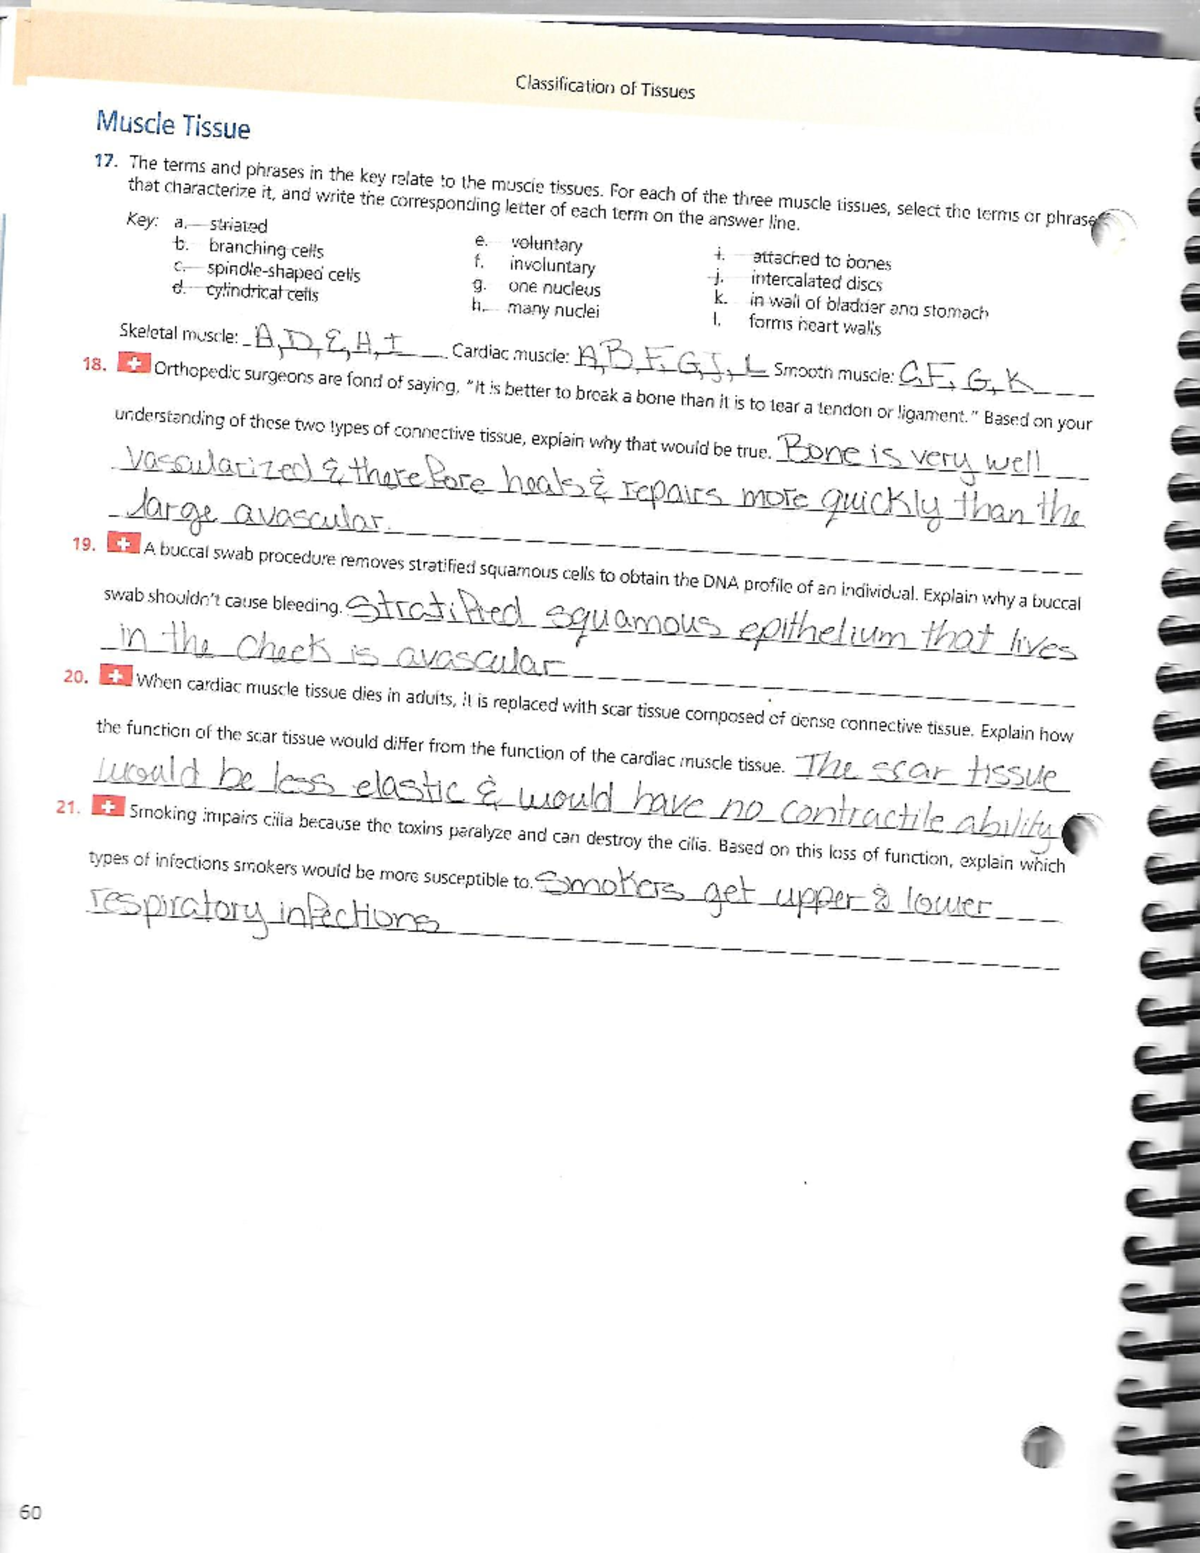 Classification of Tissues
Muscle Tissue
17. The terms and phrases in the key relate to the muscle tissues. For each of the three muscle tissues, select the terms or phrases
that characterize it, and write the corresponding letter of each term on the answer line.
Key: a. striated e. voluntary i. attached to bones
b. branching cells f. involuntary j. intercalated discs
c. spindle-shaped cells g. one nucleus k. in wall of bladder and stomach
d. cylindrical cells h. many nuclei l. forms heart walls
Skeletal muscle: A, D, E, H, I Cardiac muscle: A, B, F, G, J, L Smooth muscle: C, F, G, K
18. + Orthopedic surgeons are fond of saying, "It is better to break a bone than it is to tear a tendon or ligament." Based on your
understanding of these two types of connective tissue, explain why that would be true. Bone is very well
vascularized & therefore heals & repairs more quickly than the
large avascular.
19. + A buccal swab procedure removes stratified squamous cells to obtain the DNA profile of an individual. Explain why a buccal
swab shouldn't cause bleeding. Stratified squamous epithelium that lives
in the cheek is avascular
20. + When cardiac muscle tissue dies in adults, it is replaced with scar tissue composed of dense connective tissue. Explain how
the function of the scar tissue would differ from the function of the cardiac muscle tissue. The scar tissue
would be less elastic & would have no contractile ability
21. + Smoking impairs cilia because the toxins paralyze and can destroy the cilia. Based on this loss of function, explain which
types of infections smokers would be more susceptible to. Smokers get upper & lower
respiratory infections
60